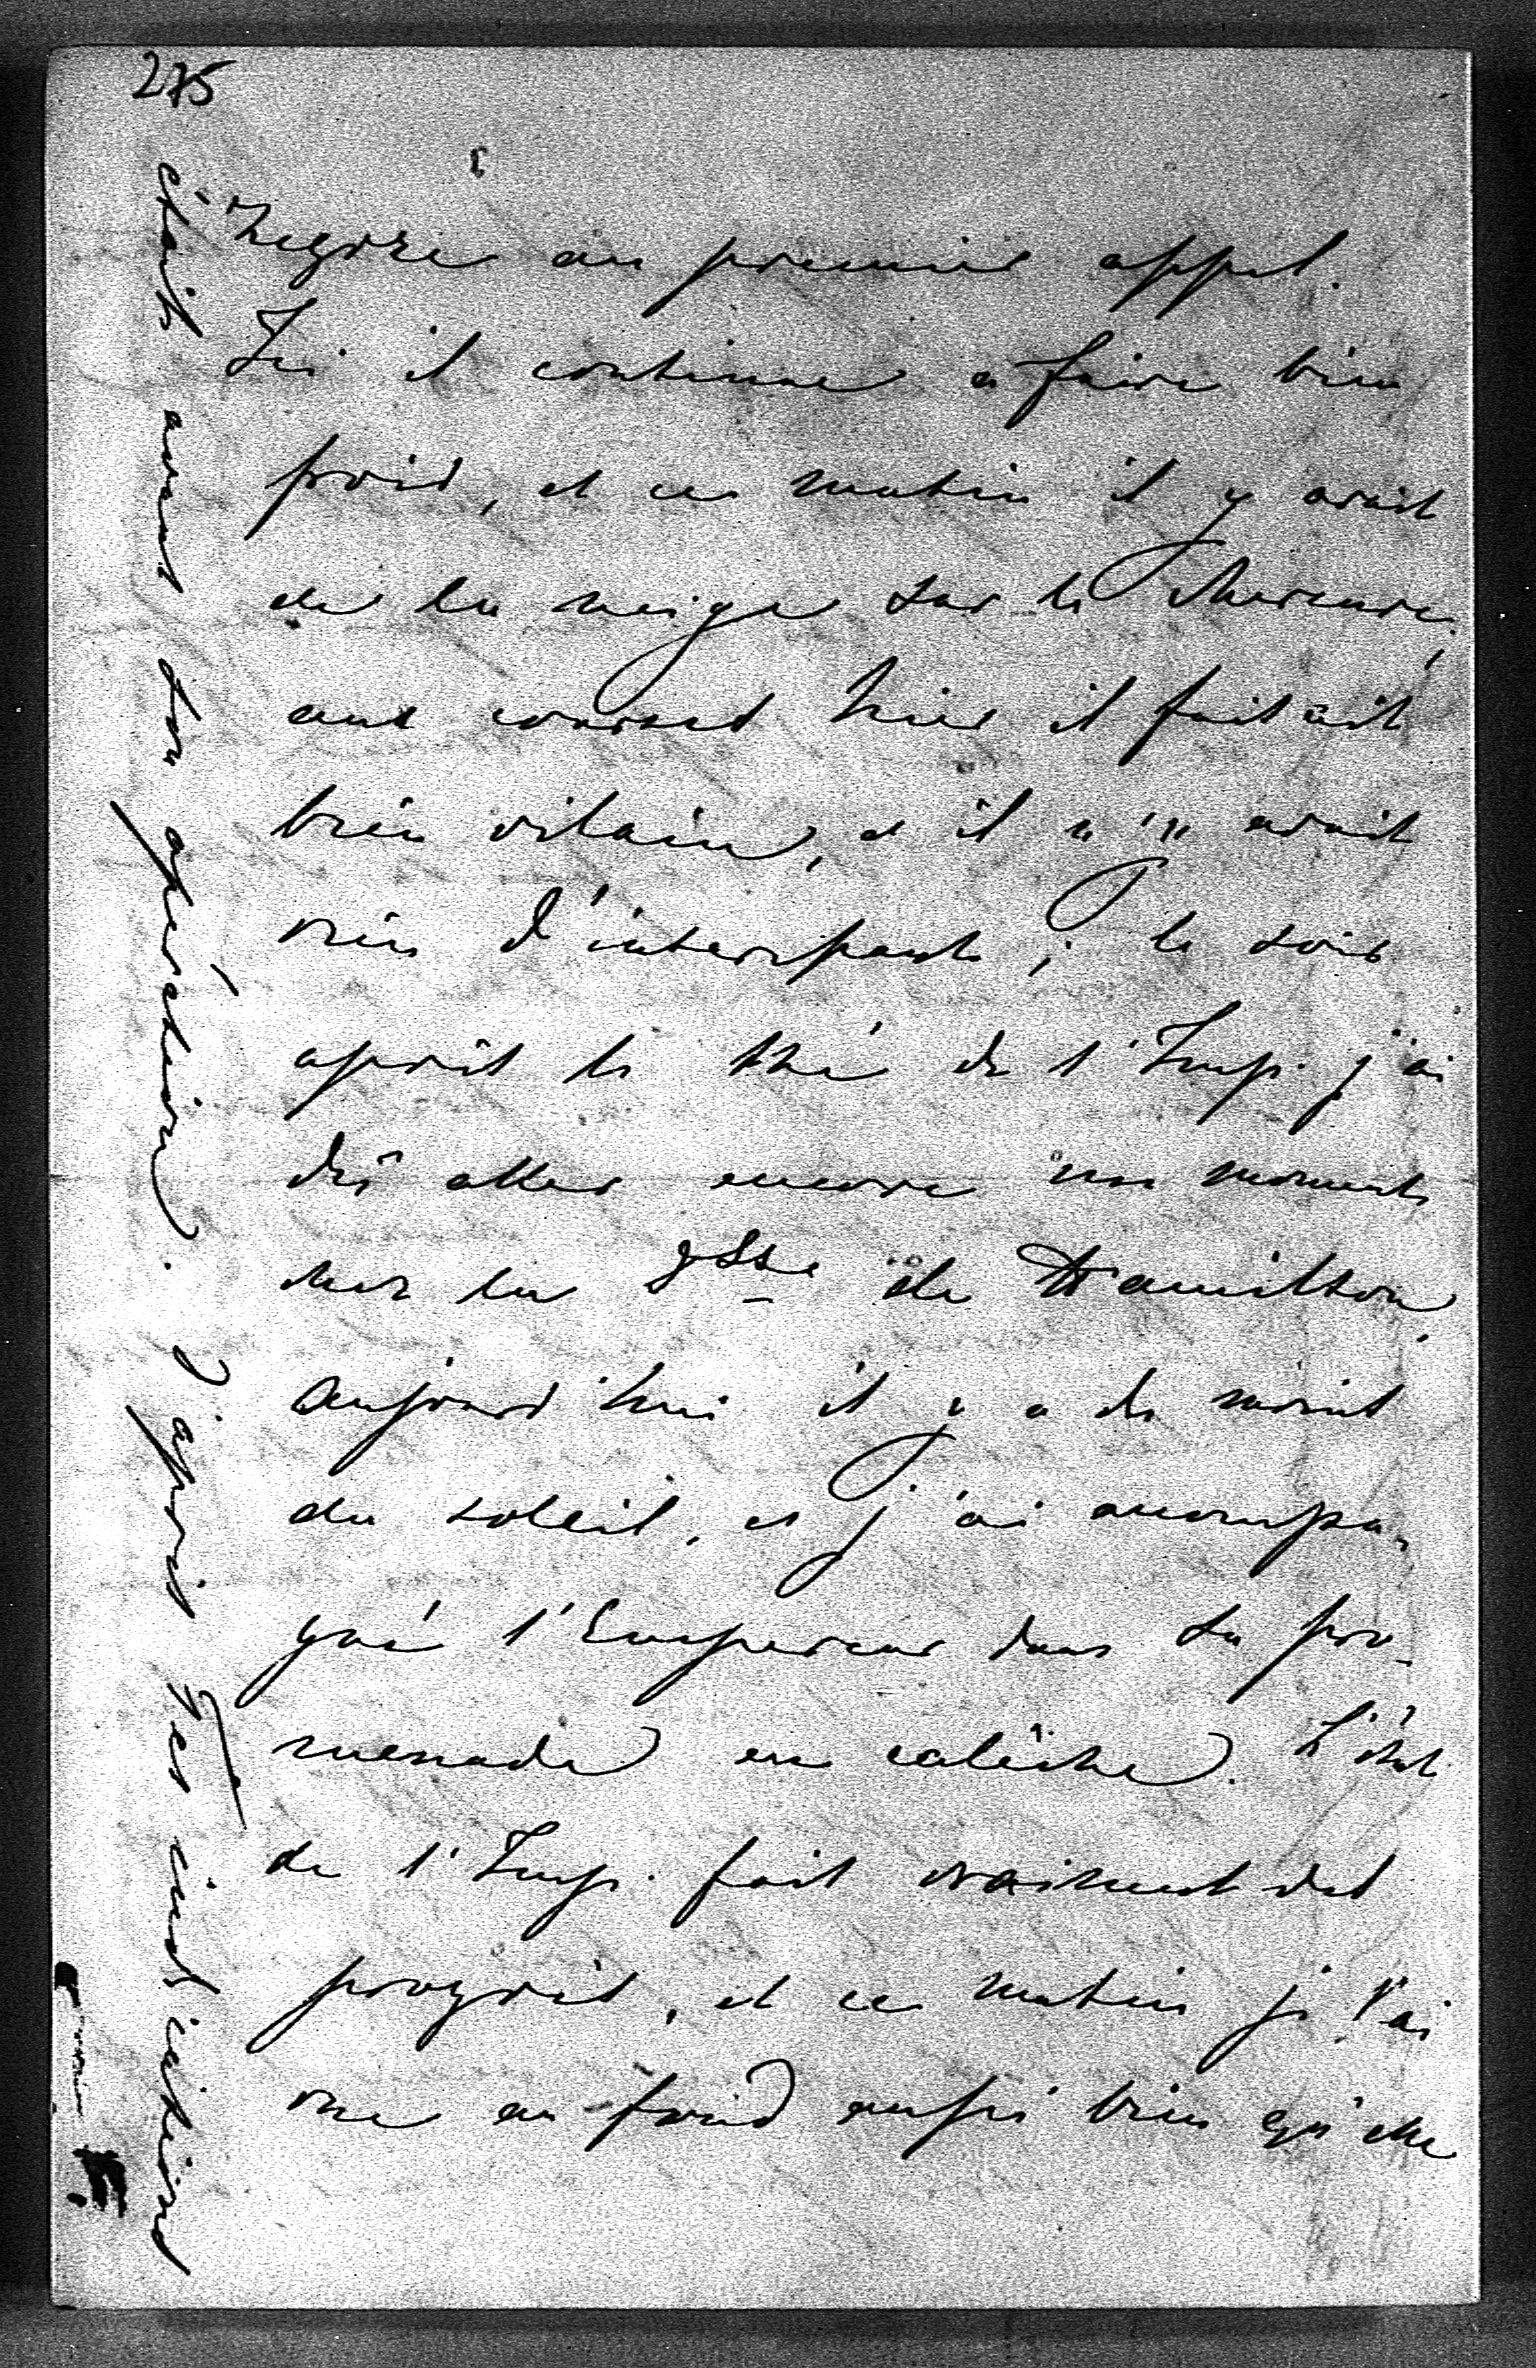 275
au premier appel.
Ici il continue a faire bien
froid, et ce matin il y avait
de la neige sur le Mercure,
aux courses hier il faisait
bien vilain, et il n'y avait
rien d'interessant; le soir
après le thé de l'Imp. j'ai
dû aller encore un moment
chez la de Hamilton,
aujourd'hui il y a du moins
du soleil, et j'ai accompa-
gné l'Empereur dans sa pro-
menade en calèche. L'état
de l'Imp. fait vraiment des
progrès, et ce matin je l'ai
vue au fond aussi bien qu'elle
était avant son opération. D'après ses indications